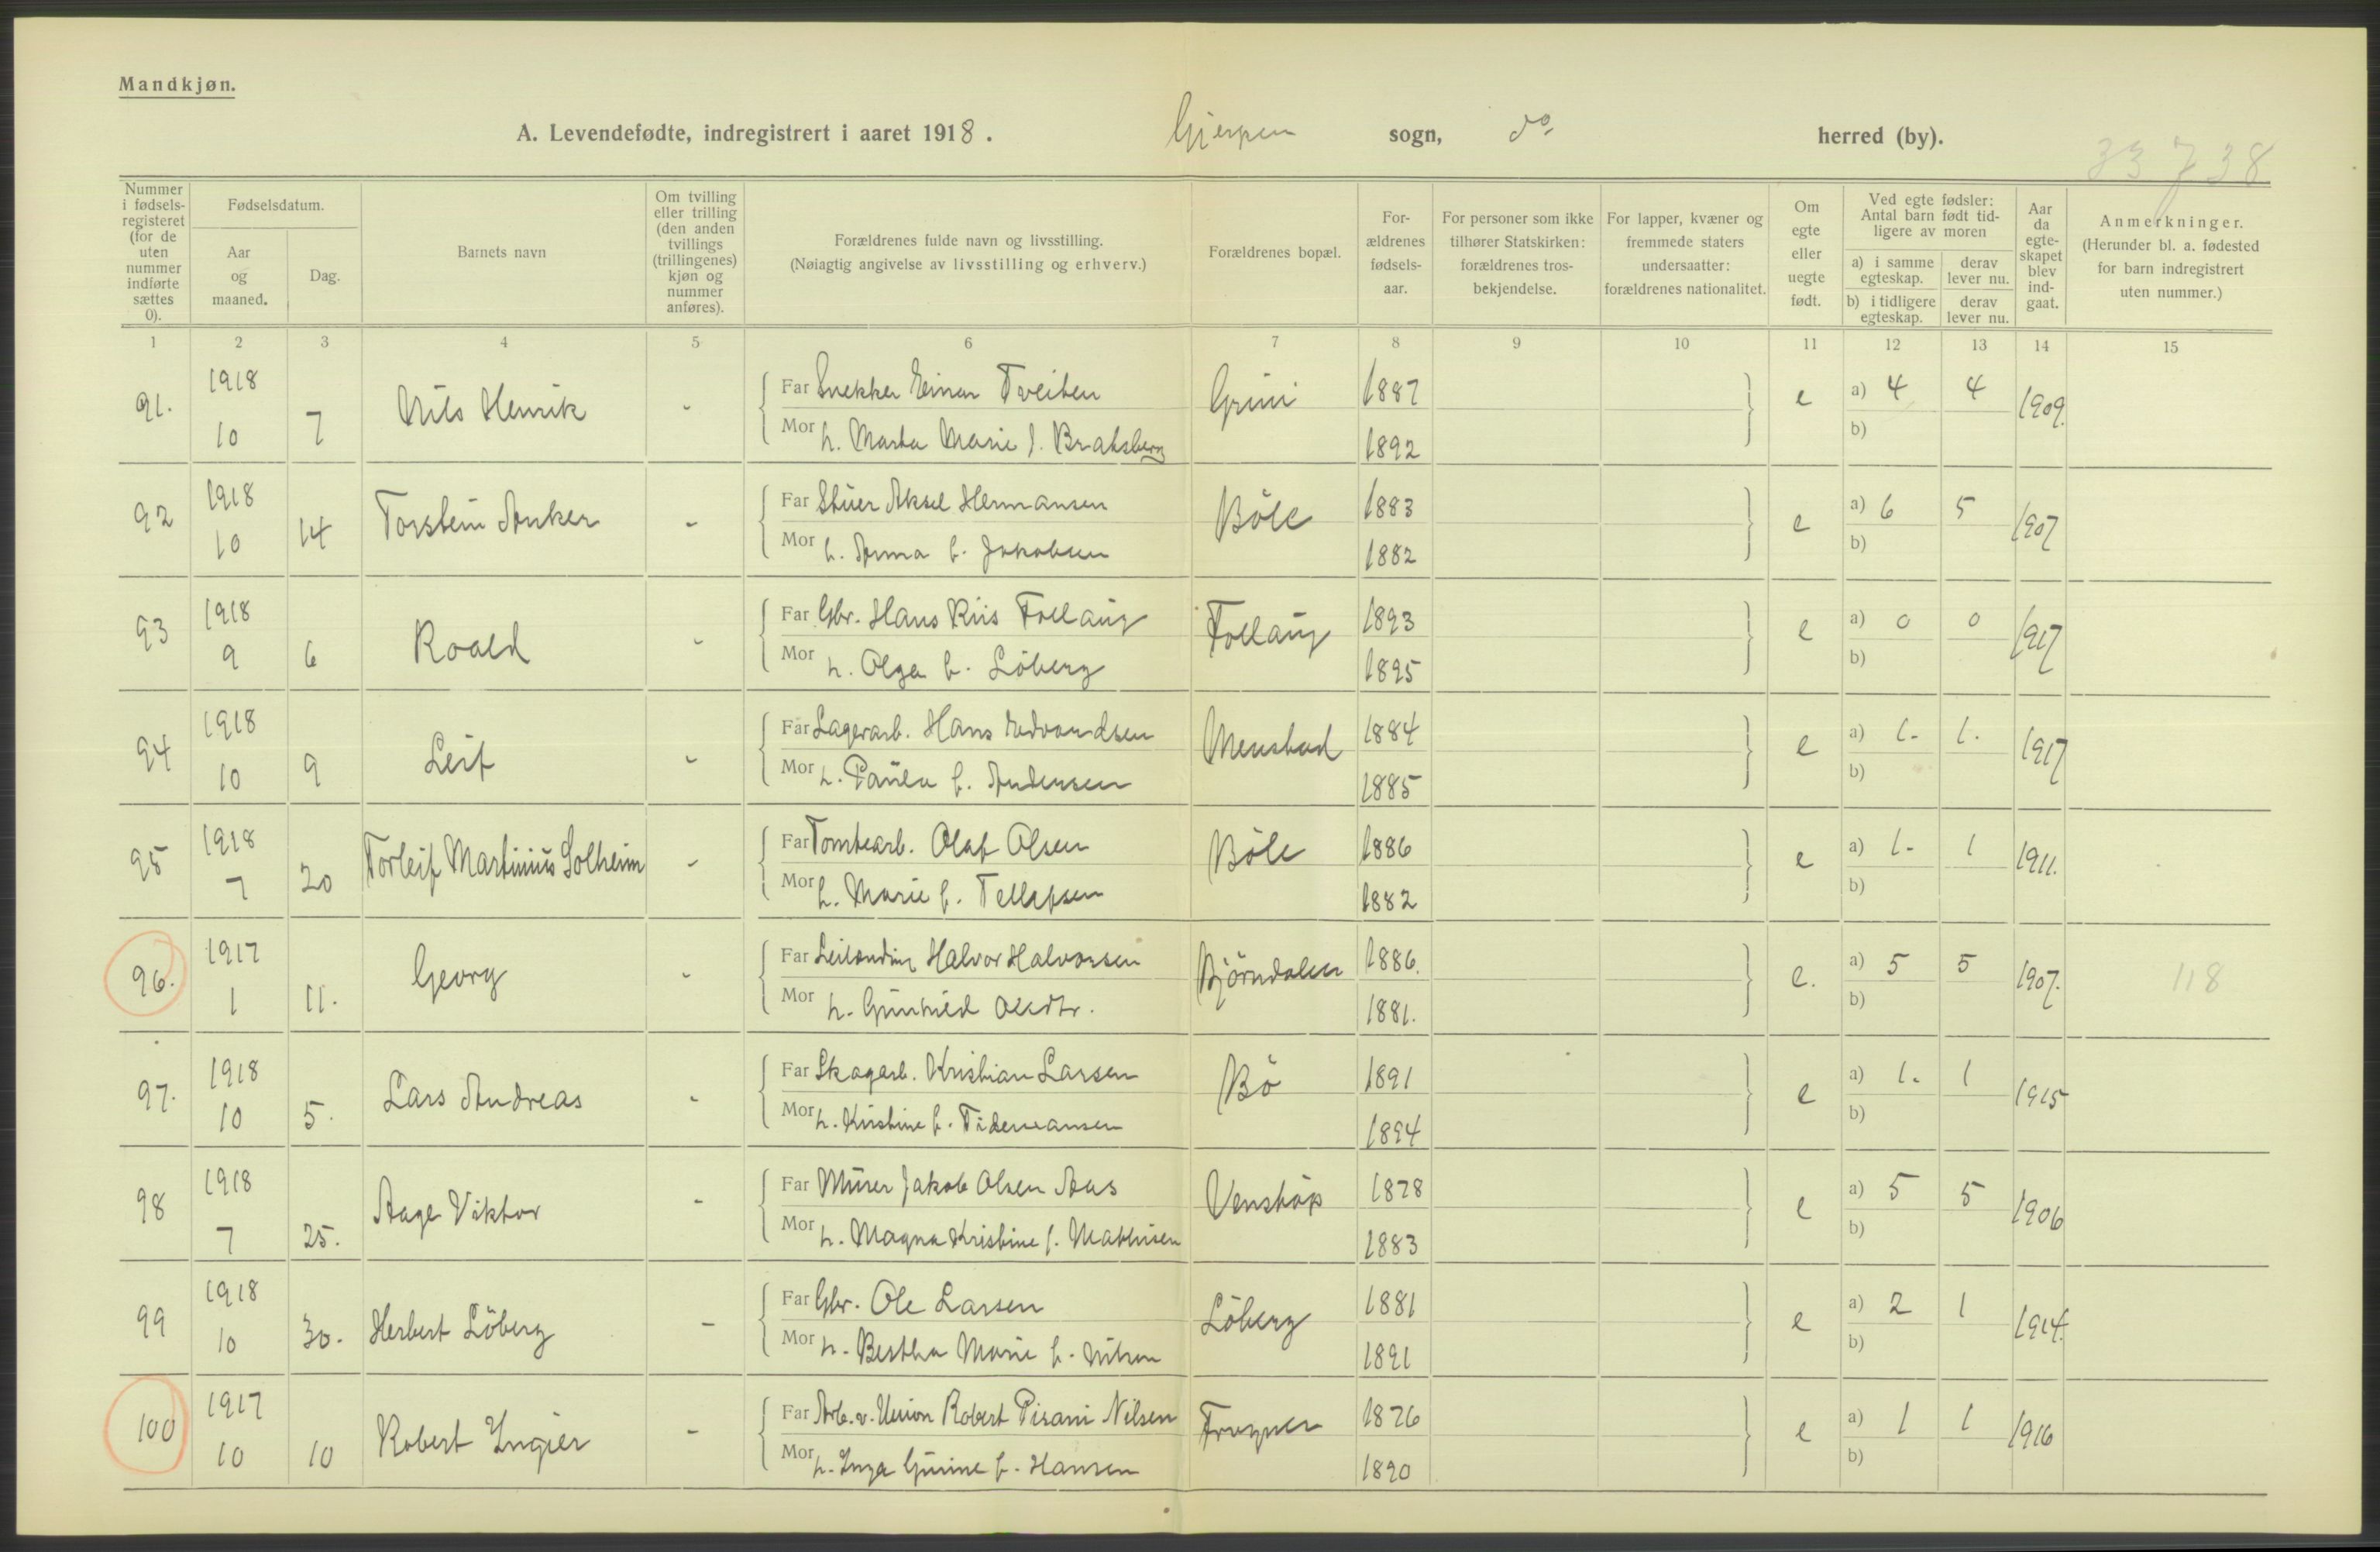 Mandkjøn.
A. Levendefødte, indregistrert i aaret 1918. Gjerpen sogn, do herred (by).
33 738
Nummer i fødsels-registeret (for de uten nummer indførte sættes 0).
Fødselsdatum.
Aar og maaned.
Dag.
Barnets navn
Om tvilling eller trilling (den anden tvillings (trillingenes) kjøn og nummer anføres).
Forældrenes fulde navn og livsstilling.
(Nøiagtig angivelse av livsstilling og erhverv.)
Forældrenes bopæl.
For-ældrenes fødsels-aar.
For personer som ikke tilhører Statskirken: forældrenes tros-bekjendelse.
For lapper, kvæner og fremmede staters undersaatter: forældrenes nationalitet.
Om egte eller uegte født.
Ved egte fødsler: Antal barn født tid-ligere av moren
a) i samme egteskap. derav lever nu.
b) i tidligere egteskap. derav lever nu.
Aar da egte-skapet blev ind-gaat.
Anmerkninger.
(Herunder bl. a. fødested for barn indregistrert uten nummer.)
1 2 3 4 5 6 7 8 9 10 11 12 13 14 15
91. 1918 10 7 Nils Henrik - Far Snekker Einar Tveiten Grini 1887 e a) 4 4 1909.
Mor h. Marta Marie f. Bratsberg 1892 b)
92 1918 10 14 Torstein Anker - Far Stuer Aksel Hermansen Böle 1883 e a) 6 5 1907
Mor h. Anna f. Jakobsen 1882 b)
93 1918 9 6 Roald - Far Gbr. Hans Riis Follaug Follaug 1893 e a) 0 0 1917
Mor h. Olga f. Löberg 1895 b)
94 1918 10 9 Leif - Far Lagerarb. Hans Edvardsen Menstad 1884 e a) 1. 1. 1917
Mor h. Paula f. Andersen 1885 b)
95 1918 7 20 Torleif Martinius Solheim - Far Tomtearb. Olaf Olsen Böle 1886 e a) 1. 1 1911.
Mor h. Marie f. Tellefsen 1882 b)
96. 1917 1 11. Georg - Far Leilænding Halvor Halvorsen Björndalen 1886. e. a) 5 5 1907. 118
Mor h. Gunhild Olsdtr. 1881. b)
97. 1918 10 5. Lars Andreas - Far Skogarb. Kristian Larsen Bö 1891 e a) 1. 1 1915
Mor h. Kirstine f. Tidemansen 1894 b)
98 1918 7 25. Aage Viktor - Far Murer Jakob Olsen Aas Venstöp 1878 e a) 5 5 1906
Mor h. Magna Kristine f. Mathisen 1883 b)
99 1918 10 30. Herbert Löberg - Far Gbr. Ole Larsen Löberg 1881 e a) 2 1 1914.
Mor h. Bertha Marie f. Nilsen 1891 b)
100 1917 10 10 Robert Yngier - Far Arb. v. Union Robert Pisani Nilsen Frogner 1876 e a) 1 1 1916
Mor h. Inga Gurine f. Hansen 1890 b)